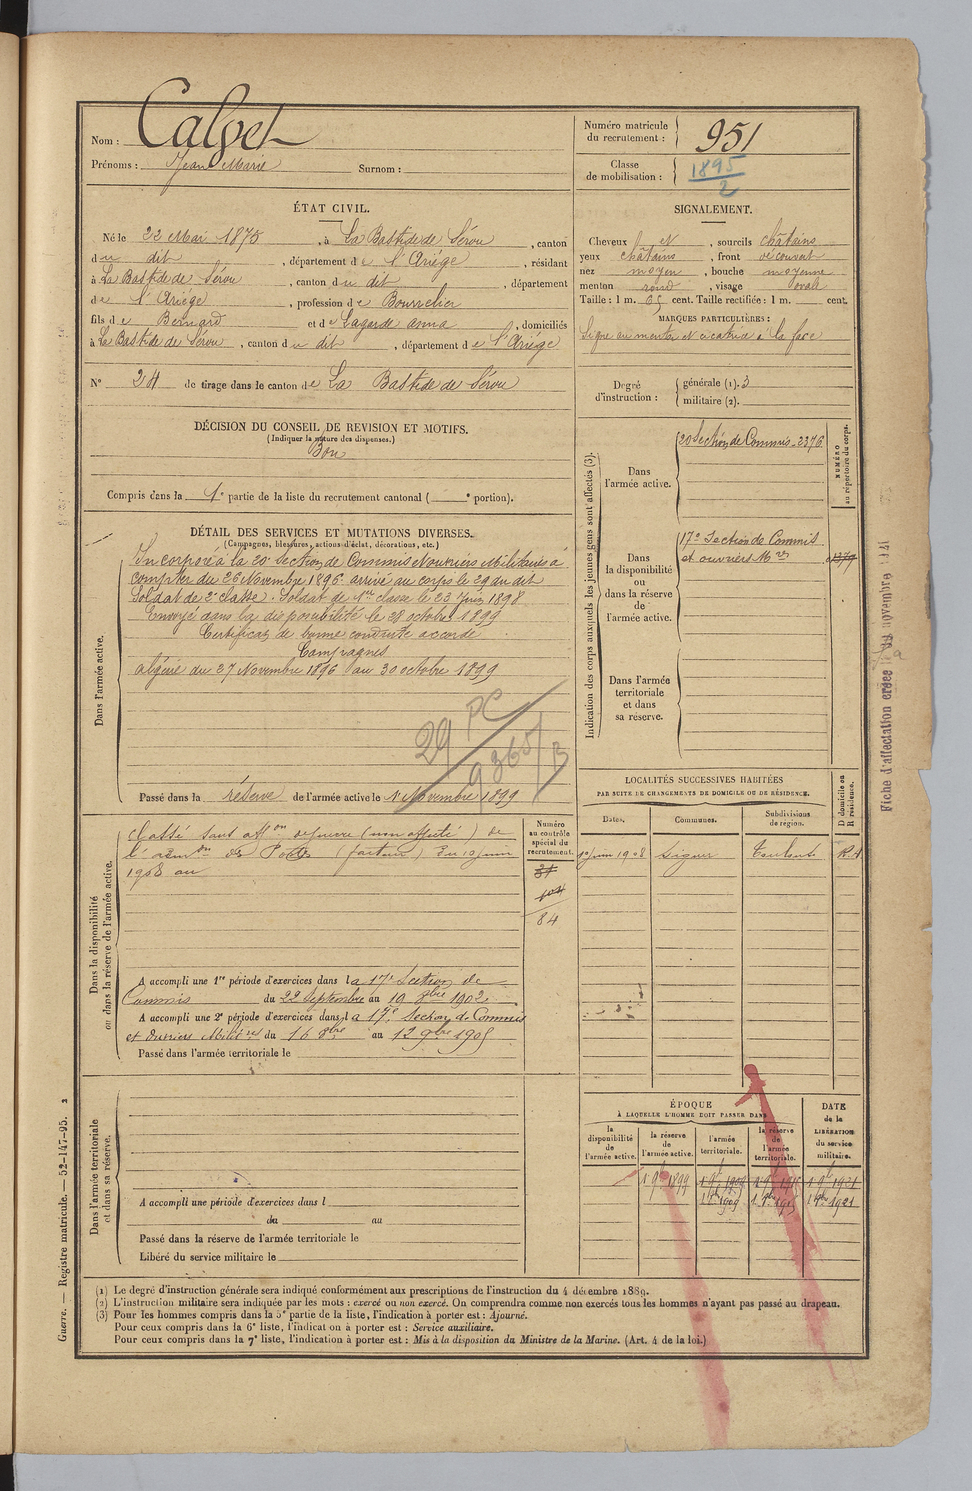 Nom : Calvet
Prénoms : Jean Marie Surnom :
Numéro matricule du recrutement : 951
Classe de mobilisation : 1895/2
ÉTAT CIVIL.
Né le 22 Mai 1875, à La Bastide de Sérou, canton
du dit, département de l'Ariège, résidant
à La Bastide de Sérou, canton du dit, département
de l'Ariège, profession de Bourrelier
fils de Bernard et de Lagarde anna, domiciliés
à La Bastide de Sérou, canton du dit, département de l'Ariège
N° 24 de tirage dans le canton de La Bastide de Sérou
SIGNALEMENT.
Cheveux et, sourcils châtains
yeux châtains, front découvert
nez moyen, bouche moyenne
menton rond, visage ovale
Taille : 1 m. 65 cent. Taille rectifiée : 1 m. cent.
MARQUES PARTICULIÈRES :
Signe au menton et cicatrice à la face
Degré d'instruction : générale (1). 3
militaire (2).
DÉCISION DU CONSEIL DE REVISION ET MOTIFS.
(Indiquer la nature des dispenses.)
Bon
Compris dans la 1e partie de la liste du recrutement cantonal ( e portion).
DÉTAIL DES SERVICES ET MUTATIONS DIVERSES.
(Campagnes, blessures, actions d'éclat, décorations, etc.)
Dans l'armée active.
Incorporé à la 20e Section de Commis et ouvriers Militaires à
compter du 26 Novembre 1896 arrivé au corps le 29 du dit
Soldat de 2e classe. Soldat de 1re classe le 23 Juin 1898
Envoyé dans la disponibilité le 28 octobre 1899
Certificat de bonne conduite accordé
Campagnes
algérie du 27 Novembre 1896 au 30 octobre 1899
29 PC
9365/B
Passé dans la réserve de l'armée active le 1 Novembre 1899
Indication des corps auxquels les jeunes gens sont affectés (3).
NUMÉRO au répertoire du corps.
Dans l'armée active.
20 Section de Commis 2376
Dans la disponibilité ou dans la réserve de l'armée active.
17e Section de Commis
et ouvriers Mres
Dans l'armée territoriale et dans sa réserve.
Fiche d'affectation créée novembre 1921
LOCALITÉS SUCCESSIVES HABITÉES
PAR SUITE DE CHANGEMENTS DE DOMICILE OU DE RÉSIDENCE.
Dates. Communes. Subdivisions de région. D domicile ou R résidence.
10 juin 1908 Toulouse
Dans la disponibilité ou dans la réserve de l'armée active.
Numéro au contrôle spécial du recrutement.
Classé sans affon de guerre (non affecté) de
l'admon des Postes (facteur) du 10 juin
1908 au
84
A accompli une 1re période d'exercices dans la 17e Section de
Commis du 22 Septembre au 19 8bre 1902
A accompli une 2e période d'exercices dans la 17e Section de Commis
et Ouvriers Militres du 16 8bre au 12 9bre 1905
Passé dans l'armée territoriale le
ÉPOQUE
À LAQUELLE L'HOMME DOIT PASSER DANS
la disponibilité de l'armée active.
la réserve de l'armée active.
l'armée territoriale.
la réserve de l'armée territoriale.
DATE de la LIBÉRATION du service militaire.
1 9bre 1899
1 9bre 1909 1 9bre 1915 1 9bre 1921
Dans l'armée territoriale et dans sa réserve.
A accompli une période d'exercices dans l
du au
Passé dans la réserve de l'armée territoriale le
Libéré du service militaire le
(1) Le degré d'instruction générale sera indiqué conformément aux prescriptions de l'instruction du 4 décembre 1889.
(2) L'instruction militaire sera indiquée par les mots : exercé ou non exercé. On comprendra comme non exercés tous les hommes n'ayant pas passé au drapeau.
(3) Pour les hommes compris dans la 5e partie de la liste, l'indication à porter est : Ajourné.
Pour ceux compris dans la 6e liste, l'indication à porter est : Service auxiliaire.
Pour ceux compris dans la 7e liste, l'indication à porter est : Mis à la disposition du Ministre de la Marine. (Art. 4 de la loi.)
Guerre. — Registre matricule. — 52-147-95. 2